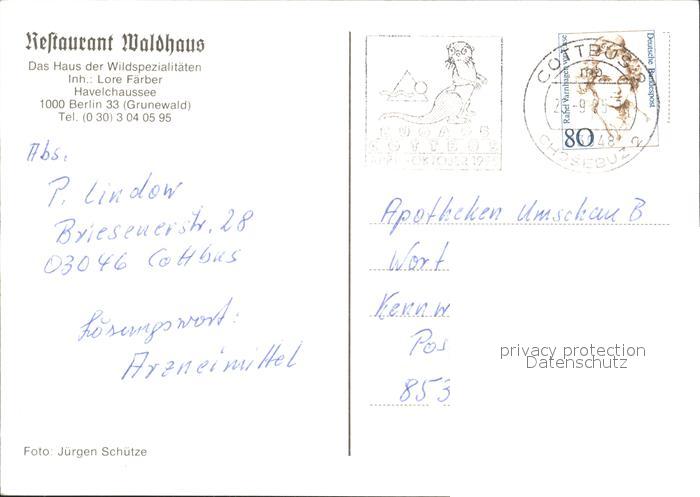 Restaurant Waldhaus
Das Haus der Wildspezialitäten
Inh.: Lore Färber
Havelchaussee
1000 Berlin 33 (Grunewald)
Tel. (0 30) 3 04 05 95
Abs.
P. Lindow
Briesenerstr. 28
03046 Cottbus
Lösungswort:
Arzneimittel
Foto: Jürgen Schütze
COTTBUS
COTTBUS 2
CHOSEBUZ 2
Rahel Varnhagen von Ense
Deutsche Bundespost
80
Apotheken Umschau B
Wort
Kennw
Pos
853
privacy protection
Datenschutz